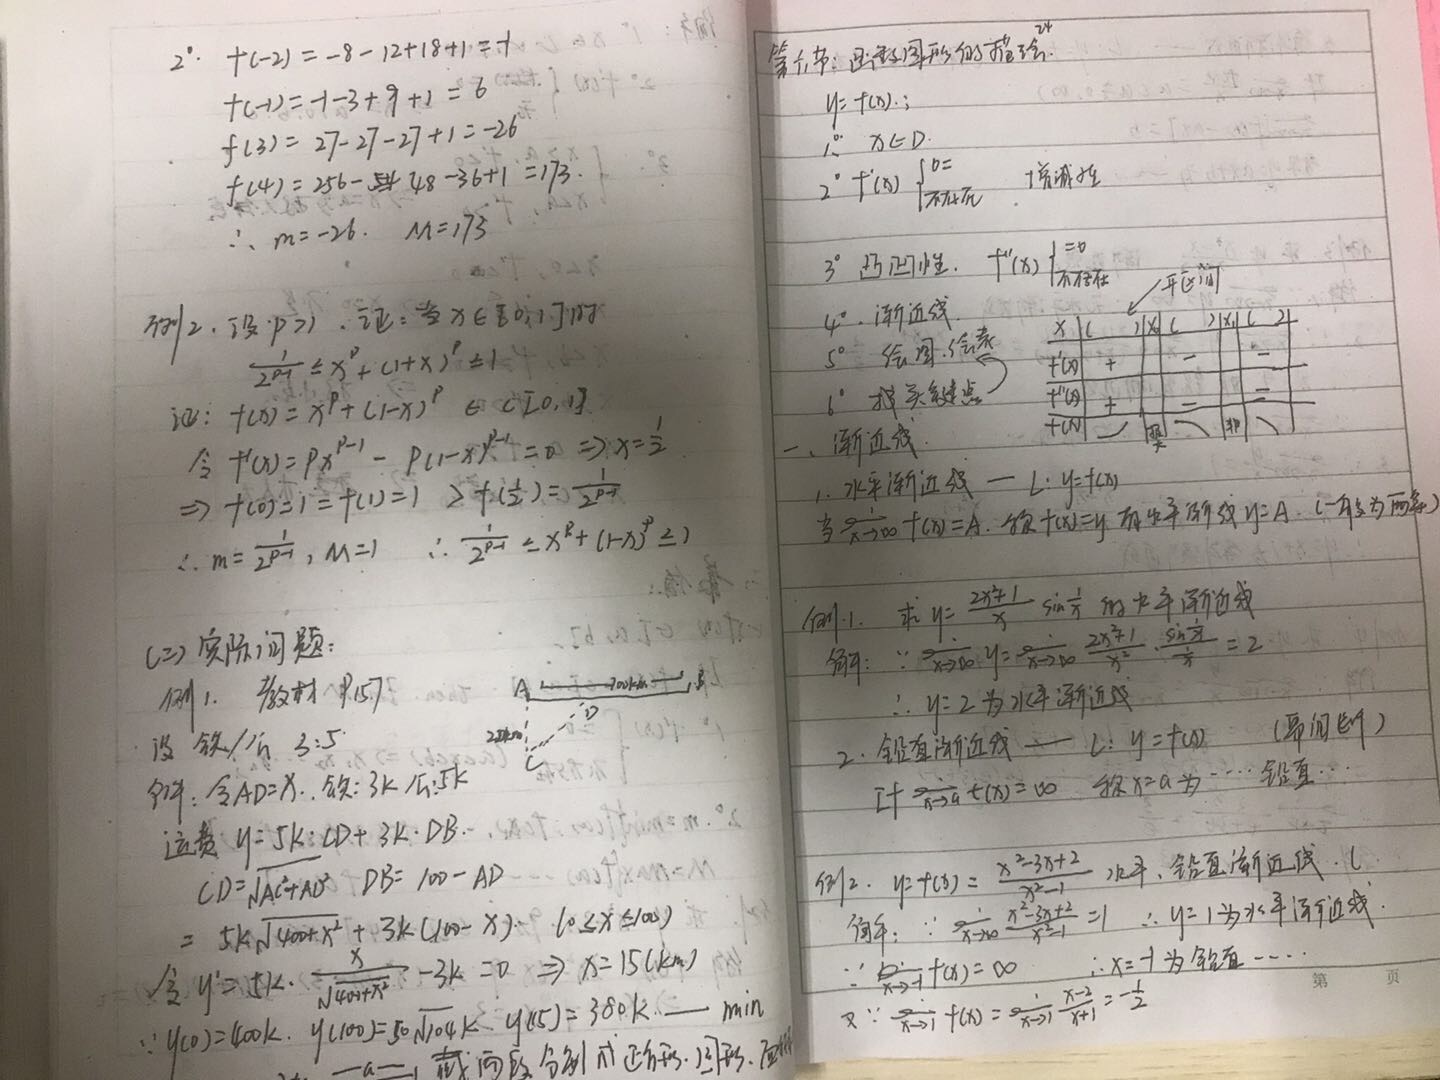 2° f(-2) = -8 - 12 + 18 + 1 = -1
f(-1) = -1 - 3 + 9 + 1 = 6
f(3) = 27 - 27 - 27 + 1 = -26
f(4) = 256 - 48 - 36 + 1 = 173.
∴ m = -26. M = 173
例2. 设 P>1, 证: 当 x∈[0,1]时
1/2^(p-1) ≤ x^p + (1+x)^p ≤ 1
证: f(x) = x^p + (1-x)^p ∈ C[0,1]
令 f'(x) = Px^(p-1) - P(1-x)^(p-1) = 0 ⇒ x = 1/2
⇒ f(0) = 1 = f(1) = 1 > f(1/2) = 1/2^(p-1)
∴ m = 1/2^(p-1), M = 1 ∴ 1/2^(p-1) ≤ x^p + (1-x)^p ≤ 1
(二) 实际问题:
例1. 教材 P157
A 100km B
20km D
C
设 铁/公 3:5
解: 令AD = x. 铁: 3k 公: 5k
运费 y = 5k·CD + 3k·DB.
CD = √(AC²+AD²) DB = 100 - AD
= 5k√(400+x²) + 3k(100-x). (0≤x≤100)
令 y' = 5k· x/√(400+x²) - 3k = 0 ⇒ x = 15(km)
∵ y(0) = 400k. y(100) = 50√104k. y(15) = 380k. — min
a 截两段分别成正方形. 圆形.
第六节: 函数图形的描绘. 24
y = f(x).;
1° x∈D.
2° f'(x) { 0= 不存在 增减性
3° 凸凹性. f''(x) { =0 不存在
4° 渐近线.
5° 绘图. 绘表
6° 找关键点
开区间
x ( ) x₀ ( ) x₁ ( )
f'(x) + - -
f''(x) + - -
f(x)
一、渐近线.
1. 水平渐近线 — L: y = f(x)
当 lim x→∞ f(x) = A. 称 f(x) = y 有水平渐近线 y = A. (一般为两条)
例1. 求 y = (2x²+1)/x sin 1/x 的水平渐近线
解: ∵ lim x→∞ y = lim x→∞ (2x²+1)/x² · (sin 1/x)/(1/x) = 2
∴ y = 2 为水平渐近线
2. 铅直渐近线 — L: y = f(x) (间断)
If lim x→a f(x) = ∞ 称 x = a 为 ···· 铅直 ···
例2. y = f(x) = (x²-3x+2)/(x²-1) 水平、铅直渐近线. L
解: ∵ lim x→∞ (x²-3x+2)/(x²-1) = 1 ∴ y = 1 为水平渐近线.
∵ lim x→-1 f(x) = ∞ ∴ x = -1 为铅直 ····
又∵ lim x→1 f(x) = lim x→1 (x-2)/(x+1) = -1/2
第 页